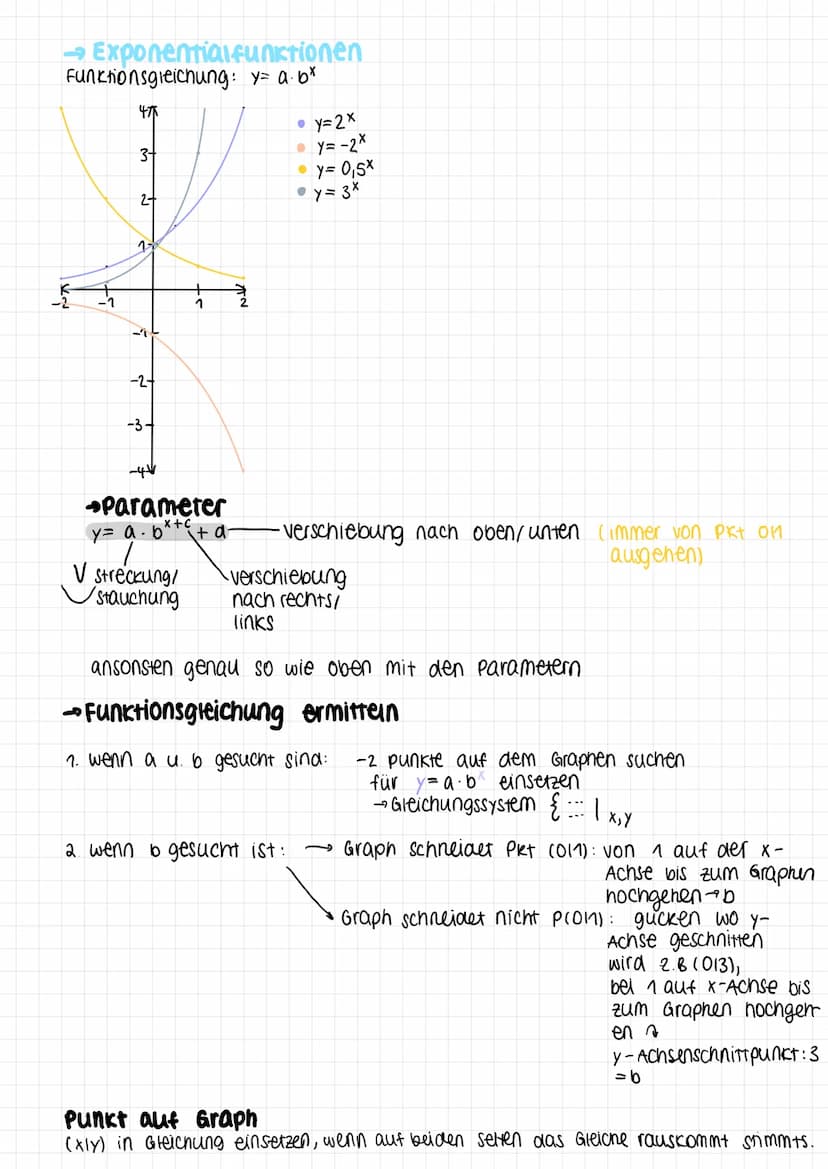 → Exponentialfunktionen
Funktionsgleichung: y= a·bˣ
4
3
2
1
-2 -1 1 2
-1
-2
-3
-4
y=2ˣ
y= -2ˣ
y= 0,5ˣ
y= 3ˣ
→Parameter
y= a · bˣ⁺ᶜ + d
verschiebung nach oben/unten (immer von Pkt 0|1
ausgehen)
V streckung/
stauchung
verschiebung
nach rechts/
links
ansonsten genau so wie oben mit den Parametern
→Funktionsgleichung ermitteln
1. wenn a u. b gesucht sind: -2 punkte auf dem Graphen suchen
für y=a·bˣ einsetzen
→Gleichungssystem { ::: | x,y
2. wenn b gesucht ist: → Graph schneidet Pkt (0|1): von 1 auf der x-
Achse bis zum Graphen
hochgehen→b
Graph schneidet nicht P(0|1): gucken wo y-
Achse geschnitten
wird z.B (0|3),
bei 1 auf x-Achse bis
zum Graphen hochgeh
en
y-Achsenschnittpunkt:3
=b
Punkt auf Graph
(x|y) in Gleichung einsetzen, wenn auf beiden seiten das Gleiche rauskommt stimmts.